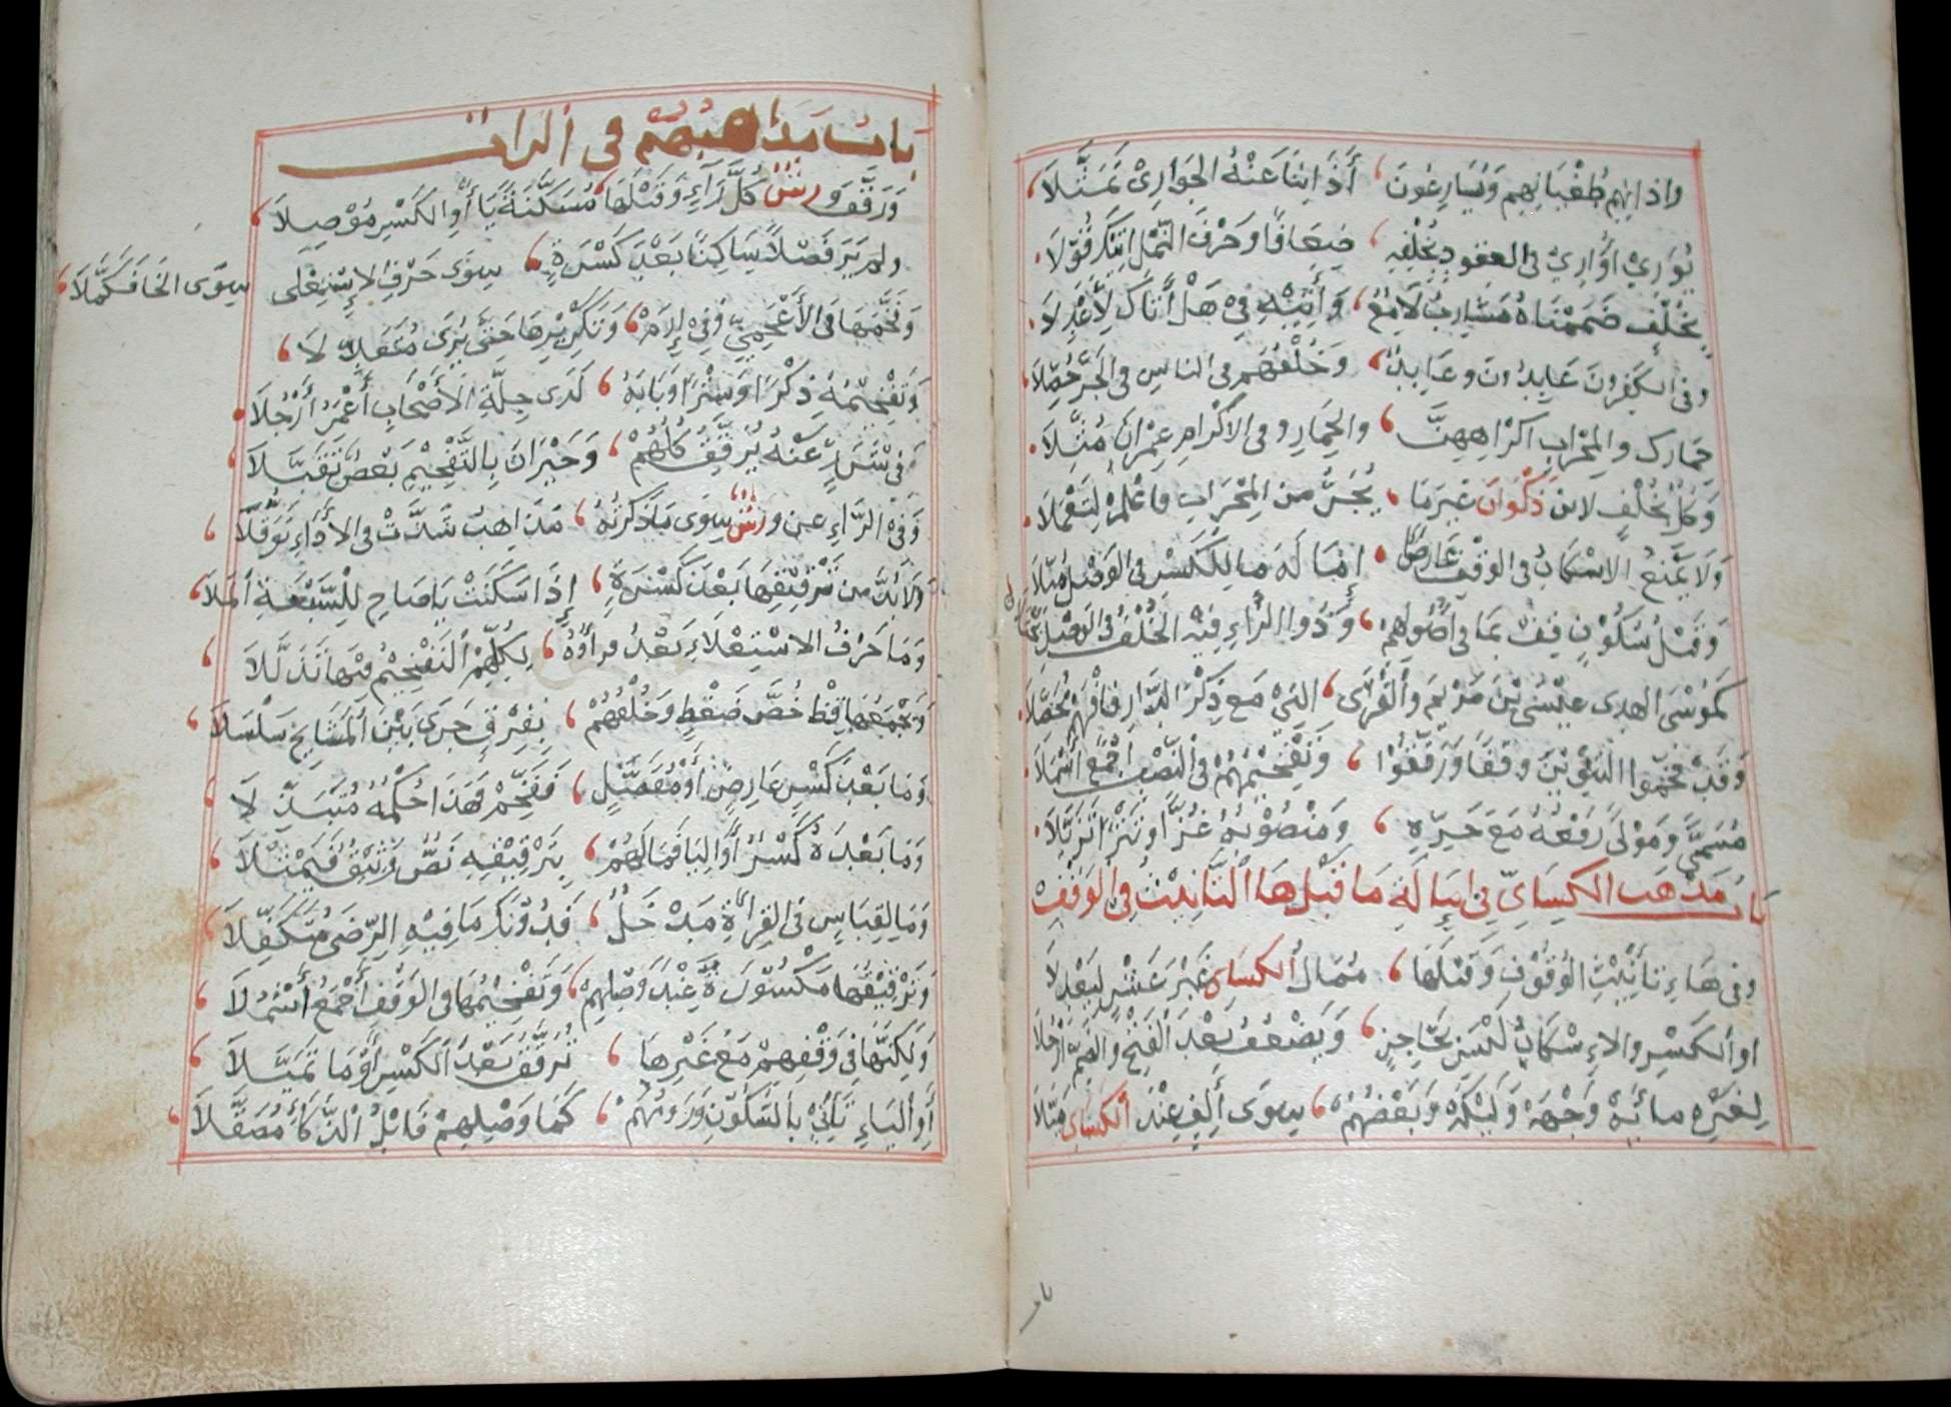 واذانهم طُغْيَانِهِم وَيُسَارِعُونَ ، أَذَانِنَا عَنْهُ الجَوَارِيْ تَمَثَّلَا
يُوَارِيْ أُوَارِيْ فى العقود بِخُلْفِهِ ، ضِعَافًا وَحَرْفَ النَّمْلِ اتِيْكَ قُوِّلَا
بِخُلْفٍ ضَمَمْنَاهُ مَشَارِبُ لَامِعٌ ، وَأَنِيَةٍ فِى هَلْ أَتَاكَ لِأَعْدِلَا
وفى الكَفِرُونَ عَابِدُونَ وعَابِدٌ ، وَخُلْفُهُم فى الناسِ فى الجَرِّ حُصِّلَا
حِمَارِك والمِحْرَابِ اكْرَاهِهِنَّ ، والحِمَارِ وفى الاكْرَامِ عِمْرَانَ مُثِّلَا
وَكُلٌّ بِخُلْفٍ لابن ذَكْوَانَ غَيرَمَا ، يُجَرُّ من المِحْرَابِ فاعْلَمْ لِتَعْمَلَا
وَلَا يَمْنَعُ الاسْكَانُ فى الوَقْفِ عَارِضًا ، إمَالَةَ مَا لِلْكَسْرِ فى الوَصْلِ مُيِّلَا
وَقَبْلَ سُكُوْنٍ قِفْ بمَا فى أُصُولِهِمْ ، وَذُوا الرَّاءِ فِيْهِ الخُلْفُ فى الوَصْلِ يُجْتَلَا
كَمُوْسَى الهدى عِيْسَى بْنَ مَرْيَمَ وأَلْقُرَى ، التيْ مَع ذِكْرَى الدَّارِ فافْهَمْ مُحَصِّلَا
وَقَدْ فَخَّمُوا التَنْوِيْنَ وقفًا وَرَقَّقُوْا ، وَتَفْخِيْمُهُمْ فى النَّصْبِ اجْمَعُ أَشْمُلَا
مُسَمًّى وَمَوْلًى رَفْعُهُ مَعَ جَرِّهِ ، وَمَنْصُوْبُهُ غُزًّا وتَتْرًا تَزَيَّلَا
باب مَذْهَب الكِسَاىّ فِى إمَالَةِ مَا قَبْلَ هَا التَّانِيْثِ فِى الوَقْفِ
وفى هَاءِ تَأنِيْثِ الوُقُوْفِ وَقَبْلَهَا ، مُمَالُ الكِسَاى غَيْرَ عَشْرٍ لِيَعْدِلَا
او الكَسْرِ والاءِسْكَانُ لَيْسَ بحَاجِزٍ ، وَيَضْعُفُ بَعْدَ الفَتْحِ والضَمِّ أَرْجُلَا
لعِبْرَه مِائَهْ وِجْهَهْ وَلَيْكَهْ وَبَعْضُهُمْ ، سِوَى أَلِفٍ عِنْدَ الكسَاى مَيَّلَا
بَابُ مَذَاهِبُهُمْ فى الرات
وَرَقَّقَ وَرشٌ كُلَّ رَآءٍ وَقَبْلَهَا ، مُسَكَّنَةً يَا أَوِ الكَسْرِ مُوْصِلَا
ولم يَرَ فَصْلًا سَاكِنًا بَعْدَ كَسْرَةٍ ، سِوَى حَرْفِ الاسْتِعْلَى سِوَى الخَا فَكَمَّلَا
وَفَخَّمَهَا فى الأَعْجَمِيِّ وَفِىْ إِرَمْ ، وَتَكْرِيْرِهَا حَتَّى يُرَى مُتَعَدِّلَا
وَتَفْخِيْمُهُ ذِكْرًا وَسِتْرًا وَبَابَهُ ، لَدَى جِلَّةِ الاصْحَابِ أَعْمَرُ أَرْجُلَا
وَفى شَرَرٍ عَنْهُ يُرَقِّقُ كُلُّهُمْ ، وَحَيْرَانَ بِالتَّفْخِيْمِ بَعْضٌ تَقَبَّلَا
وَفِى الرَّاءِ عن ورشٌ سِوَى مَا ذَكَرْتُهُ ، مَذَاهِبُ شَذَّتْ فى الادَاءِ تَوَقُّلَا
وَلَابُدَّ من تَرْقِيْقِهَا بَعْدَ كَسْرَةٍ ، إِذَا سَكَنَتْ يَاصَاحِ لِلْسَّبْعَةِ الْمَلَا
وَمَا حَرْفُ الاسْتِعْلَاءِ بَعْدُ فرَاؤُهُ ، لِكُلِّهِمُ التَفْخِيْمُ فِيْهَا تَذَلَّلَا
وَيَجْمَعُهَا قِظْ خُصَّ ضَغْطٍ وَخُلْفُهُمْ ، بِفِرْقٍ جَرَى بَيْنَ المَشَايِخِ سَلْسَلَا
وَمَا بَعْدَ كَسْرٍ عَارِضٍ أَوْ مُفَصَّلٍ ، فَفَخِّمْ فَهَذَا حُكْمُهُ مُتَبَذِّلَا
وَمَا بَعْدَهُ كَسْرٌ أَوِ اليَا فَمَا لَهُمْ ، بِتَرْقِيْقِهِ نَصٌّ وَثِيْقٌ فَيَمْثُلَا
وَمَا لِقِيَاسٍ فى القِرَاةِ مَدْخَلٌ ، فَدُوْنَكَ مَا فِيْهِ الرِّضَى مُتَكَفِّلَا
وَتَرْقِيْقُهَا مَكْسُوْرَةً عِنْدَ وَصْلِهِمْ ، وَتَفْخِيْمُهَا فى الوَقْفِ أَجْمَعُ أَشْمُلَا
وَلَكِنَّهَا فِى وَقْفِهِمْ مَعْ غَيْرِهَا ، تُرَقَّقُ بَعْدَ الكَسْرِ أَوْ مَا تَمَيَّلَا
أَوِ اليَاءِ تَأتِيْ بِالسُّكُوْنِ وَرَوْمُهُمْ ، كَمَا وَصْلِهِمْ فَابْلُ الذَّكَاءَ مُصَقَّلَا